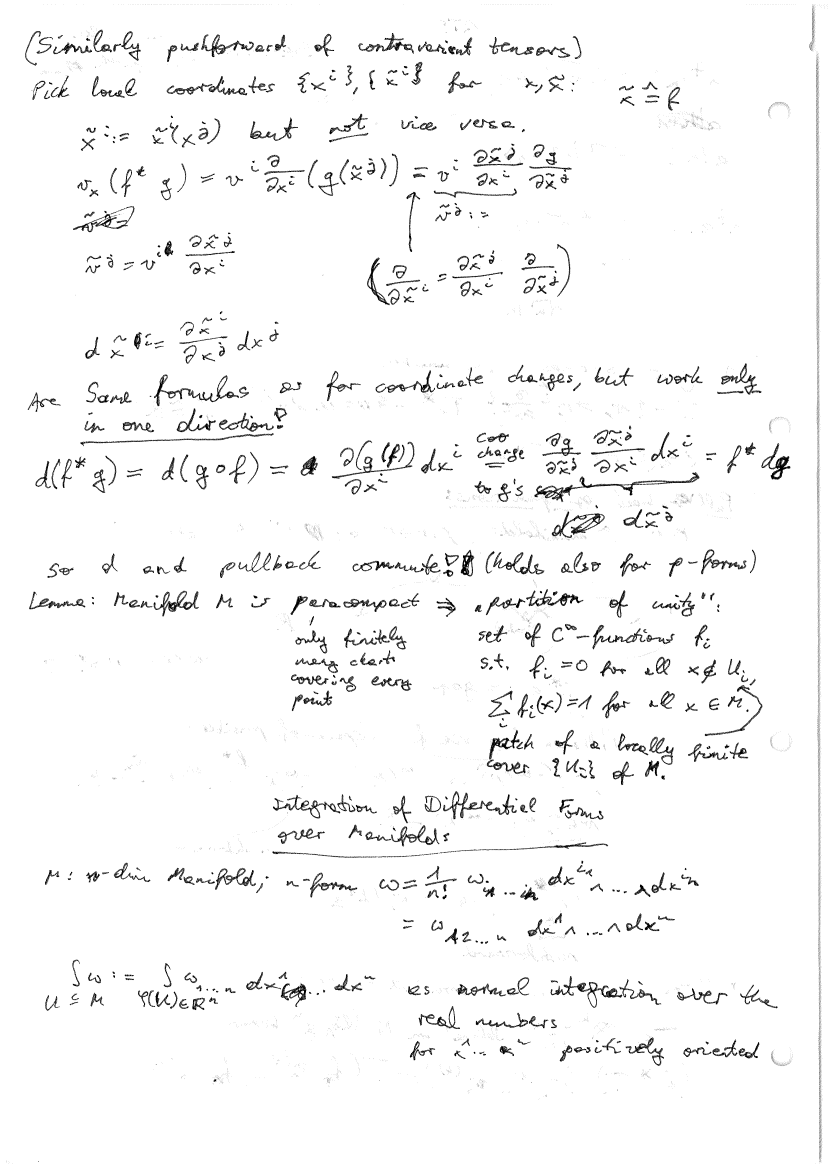 (Similarly pushforward of contravarient tensors)
Pick local coordinates {xⁱ}, {x̃ⁱ} for x, x̃: x̃ ≙ f
x̃ⁱ := x̃ⁱ(xʲ) but not vice versa.
vₓ(f* g) = vⁱ ∂/∂xⁱ (g(x̃ʲ)) = vⁱ ∂x̃ʲ/∂xⁱ ∂g/∂x̃ʲ
ṽʲ :=
ṽʲ = vⁱ ∂x̃ʲ/∂xⁱ
(∂/∂x̃ⁱ = ∂x̃ʲ/∂xⁱ ∂/∂x̃ʲ)
d x̃ⁱ = ∂x̃ⁱ/∂xʲ dxʲ
Are Same formulas as for coordinate changes, but work only
in one direction!
d(f* g) = d(g∘f) = ∂(g(f))/∂xⁱ dxⁱ = ∂g/∂x̃ʲ ∂x̃ʲ/∂xⁱ dxⁱ = f* dg
coo change
to g's
dx̃ʲ
So d and pullback commute! (holds also for p-forms)
Lemma: Manifold M is paracompact ⇒ "partition of unity":
only finitely
many charts
covering every
point
set of C^∞-functions fᵢ
s.t. fᵢ = 0 for all x ∉ Uᵢ,
∑ᵢ fᵢ(x) = 1 for all x ∈ M.
patch of a locally finite
cover {Uᵢ} of M.
Integration of Differential Forms
over Manifolds
M: n-dim Manifold; n-form ω = 1/n! ω_{i₁...iₙ} dx^{i₁} ∧ ... ∧ dx^{iₙ}
= ω_{12...n} dx¹ ∧ ... ∧ dxⁿ
∫_{U ⊆ M} ω := ∫_{φ(U) ∈ ℝⁿ} ω_{1...n} dx¹ ... dxⁿ as normal integration over the
real numbers
for x¹ ... xⁿ positively oriented